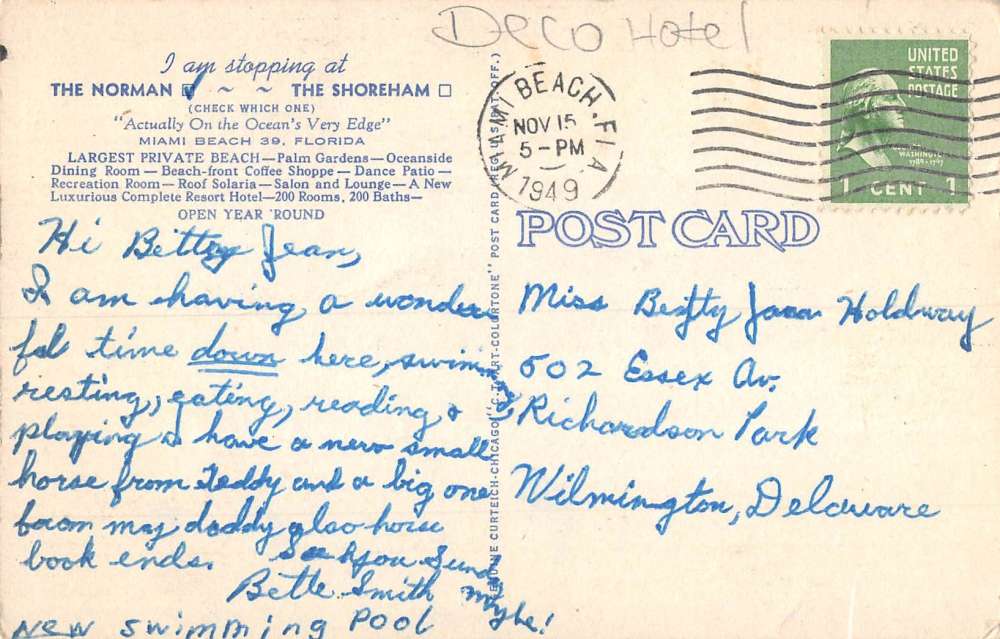 Deco Hotel
I am stopping at
THE NORMAN ☑ ~ ~ THE SHOREHAM ☐
(CHECK WHICH ONE)
"Actually On the Ocean's Very Edge"
MIAMI BEACH 39, FLORIDA
LARGEST PRIVATE BEACH—Palm Gardens—Oceanside
Dining Room—Beach-front Coffee Shoppe—Dance Patio—
Recreation Room—Roof Solaria—Salon and Lounge—A New
Luxurious Complete Resort Hotel—200 Rooms, 200 Baths—
OPEN YEAR 'ROUND
Hi Bettsy Jean,
I am having a wonder
ful time down here, swiming
resting, eating, reading, &
playing I have a new small
horse from Teddy and a big one
from my daddy also horse
book ends. See you Sunday
Bette Smith maybe!
New swimming pool
GENUINE CURTEICH-CHICAGO "C. T. ART-COLORTONE" POST CARD (REG. U.S. PAT. OFF.)
MIAMI BEACH, FLA.
NOV 15
5-PM
1949
UNITED
STATES
POSTAGE
WASHINGTON
1789-1797
1 CENT 1
POST CARD
Miss Betty Jean Holdway
502 Essex Av.
Richardson Park
Wilmington, Delaware